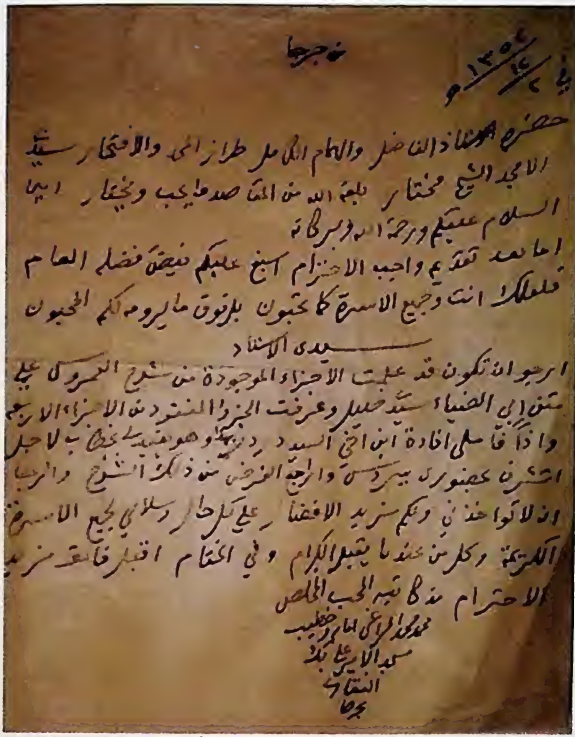 من جرجا
في ٢/١٢/١٣٥٢ ه
حضرة الاستاذ الفاضل والهمام الكامل طراز المجد والافتخار سيدي
الامجد الشيخ مختار بلغه الله من المقاصد ما يحب ويختار امين
السلام عليكم ورحمة الله وبركاته
اما بعد تقديم واجب الاحترام اسبغ عليكم فيض فضله العام
فلعلك انت وجميع الاسرة كما تحبون بلوغ ما يرومه لكم المحبون
سيدي الاستاذ
ارجو ان تكون قد علمت الأجزاء الموجودة من شرح العمروسي على
متن ابي الضياء سيدي خليل وعرفت الجزء المفقود من الاجزاء الاربعة
واذا فاملي افادة ابن اخي السيد وهو يفيد لاجل
اتشرف بحضوري وارجع الغرض من ذلك الشرح والرجا
ان لا تؤاخذني ولكم مزيد الافضال على كل حال وسلامي لجميع الاسرة
الكريمة وكل من عندنا يقبل الكرام وفي الختام اقبل فائق مزيد
الاحترام من كاتبه المحب المخلص
محمد محمد المراغي امام وخطيب
مسجد الامير علي بك
بجرجا